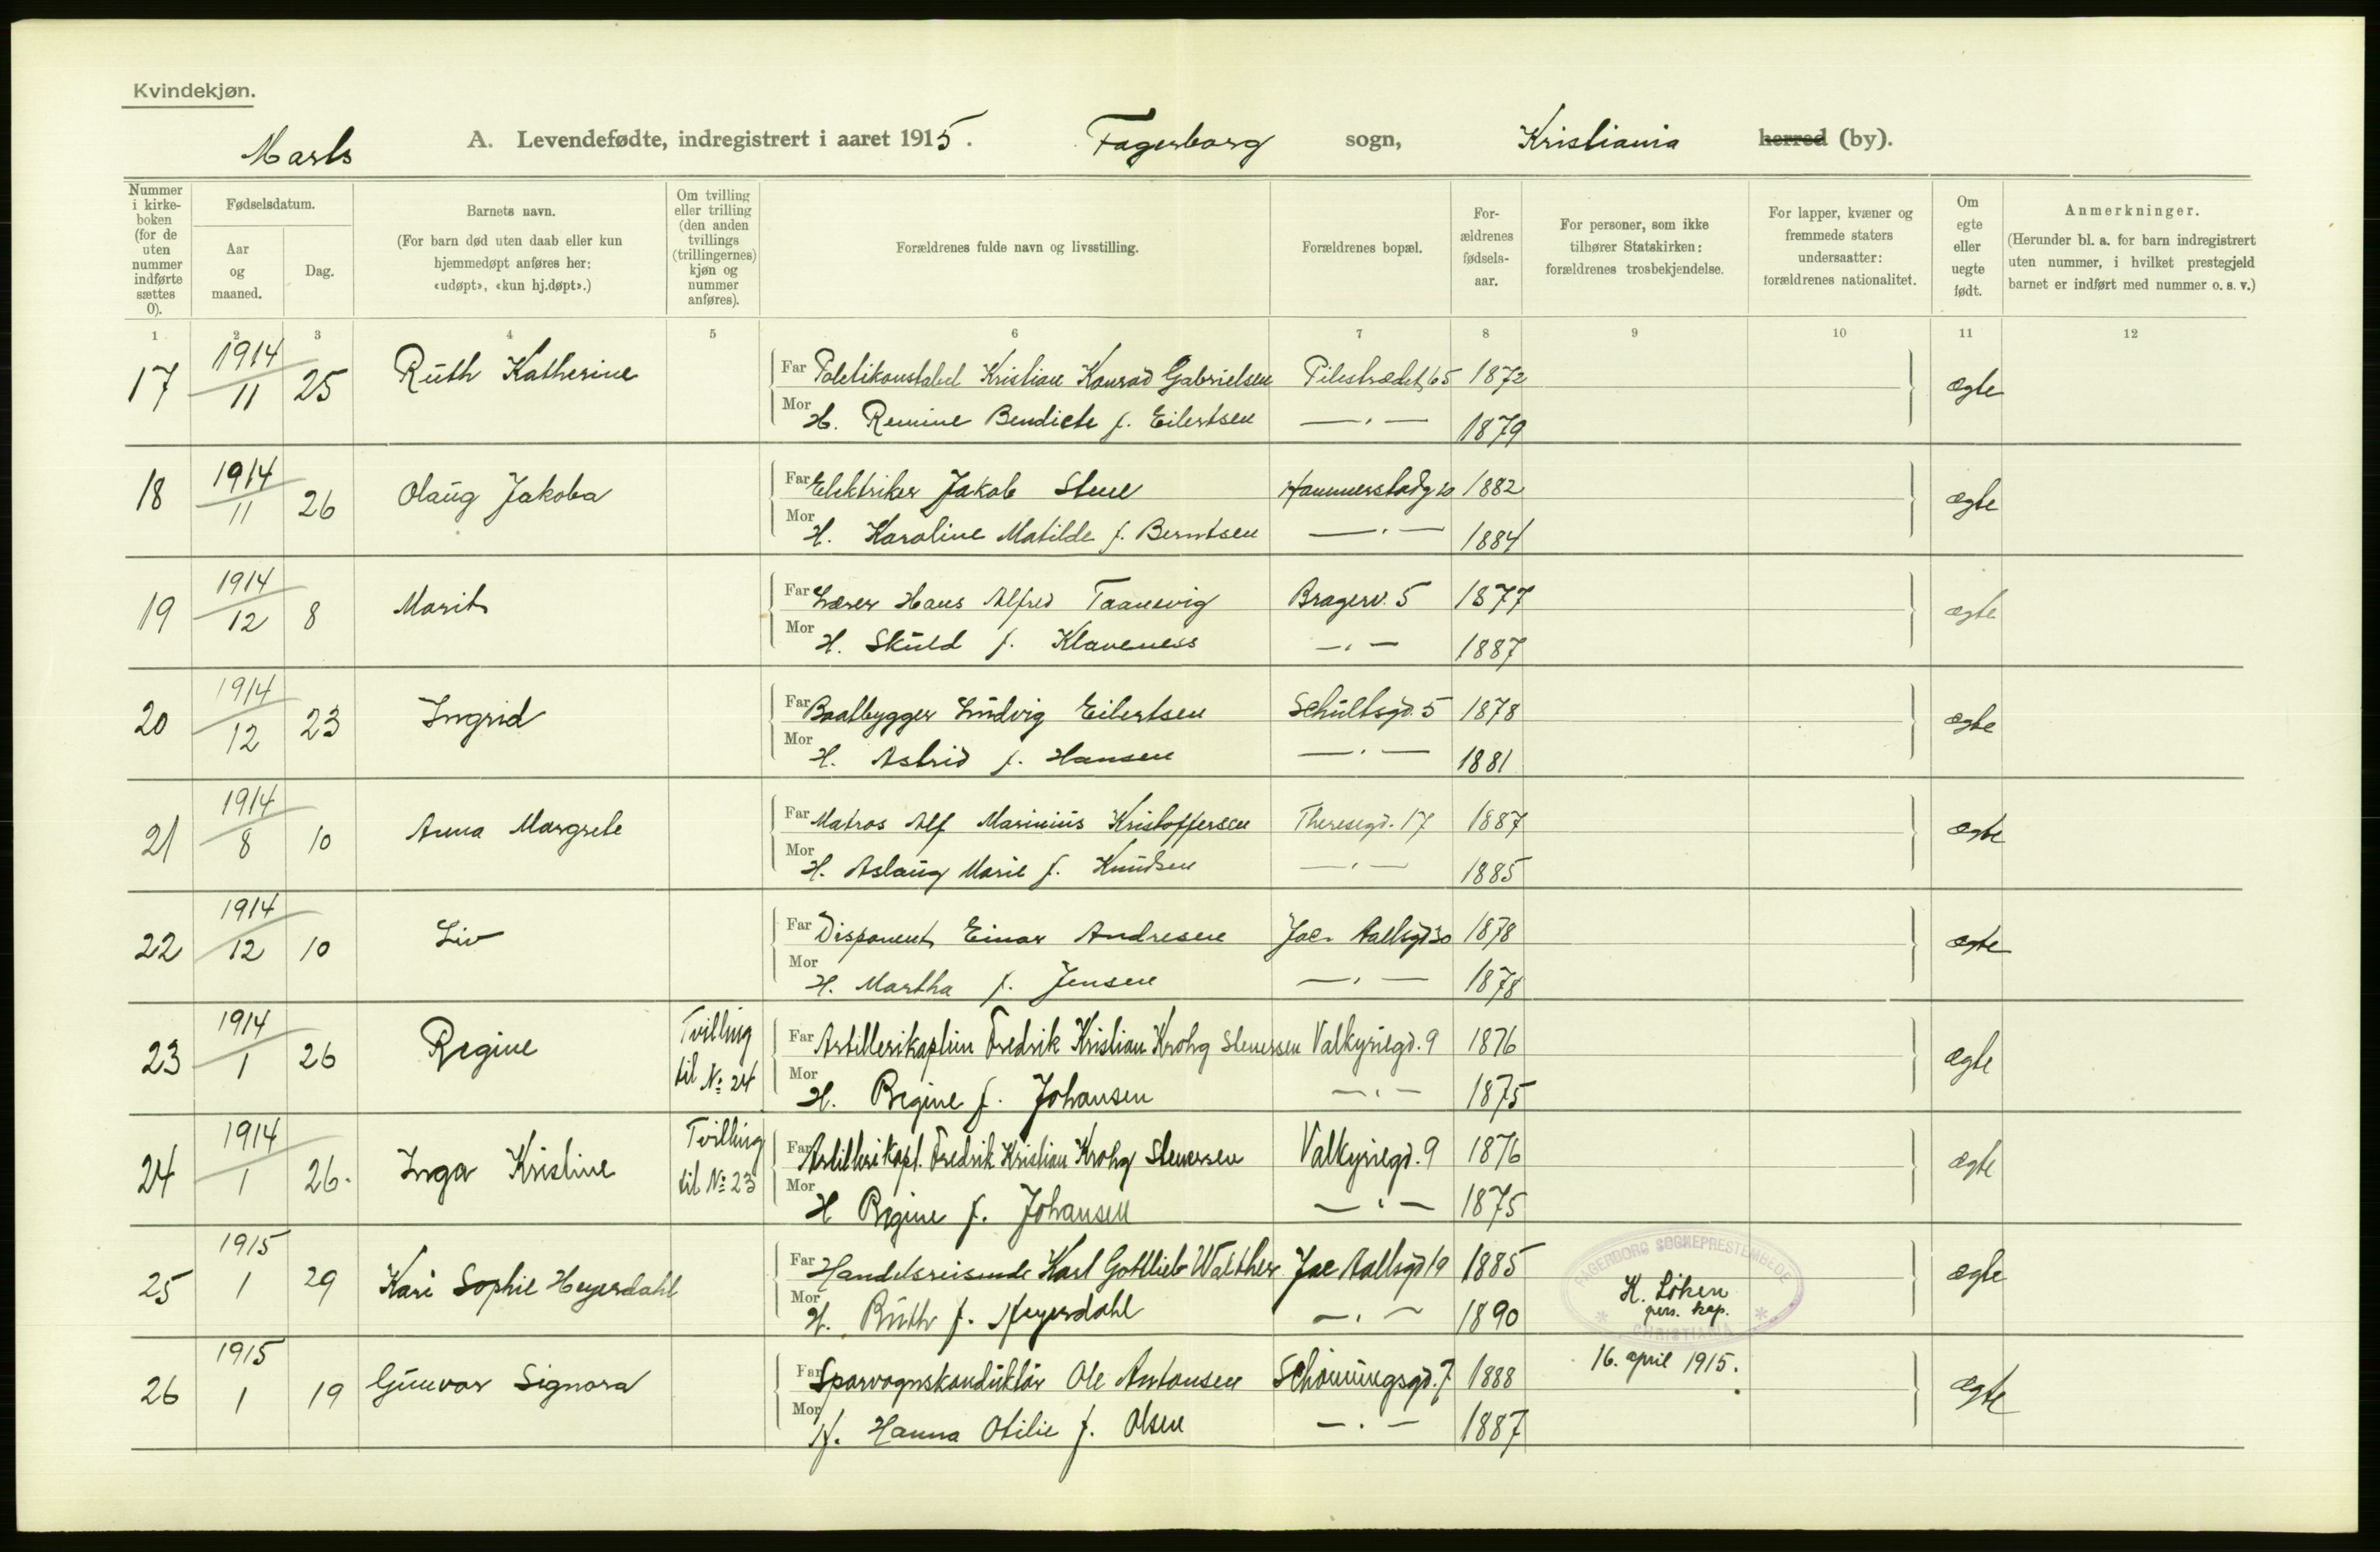 Kvindekjøn.
Marts A. Levendefødte, indregistrert i aaret 1915. Fagerborg sogn, Kristiania herred (by).
Nummer i kirkeboken (for de uten nummer indførte sættes 0).
Fødselsdatum.
Aar og maaned.
Dag.
Barnets navn.
(For barn død uten daab eller kun hjemmedøpt anføres her: «udøpt», «kun hj.døpt».)
Om tvilling eller trilling (den anden tvillings (trillingernes) kjøn og nummer anføres).
Forældrenes fulde navn og livsstilling.
Forældrenes bopæl.
Forældrenes fødselsaar.
For personer, som ikke tilhører Statskirken: forældrenes trosbekjendelse.
For lapper, kvæner og fremmede staters undersaatter: forældrenes nationalitet.
Om egte eller uegte født.
Anmerkninger.
(Herunder bl. a. for barn indregistrert uten nummer, i hvilket prestegjeld barnet er indført med nummer o. s. v.)
1 2 3 4 5 6 7 8 9 10 11 12
17 1914/11 25 Ruth Katherine Far Politikonstabel Kristian Konrad Gabrielsen Pilestrædet 65 1872 ægte
Mor H. Remine Bendicte f. Eilertsen —·— 1879
18 1914/11 26 Olaug Jakoba Far Elektriker Jakob Stene Hammerstadg 20 1882 ægte
Mor H. Karoline Matilde f. Berntsen —·— 1884
19 1914/12 8 Marit Far Lærer Hans Alfred Taanevig Bragerv. 5 1877 ægte
Mor H. Skuld f. Klaveness —·— 1887
20 1914/12 23 Ingrid Far Baatbygger Ludvig Eilertsen Schultsgd. 5 1878 ægte
Mor H. Astrid f. Hansen —·— 1881
21 1914/8 10 Anna Margrete Far Matros Alf Marinius Kristoffersen Theresegd. 17 1887 ægte
Mor H. Aslaug Marie f. Knudsen —·— 1885
22 1914/12 10 Liv Far Disponent Einar Andresen Jac. Aallsgd 30 1878 ægte
Mor H. Martha f. Jensen —·— 1878
23 1914/1 26 Regine Tvilling til No 24 Far Artillerikaptein Fredrik Kristian Krohg Stenersen Valkyriegd. 9 1876 ægte
Mor H. Regine f. Johansen —·— 1875
24 1914/1 26. Inga Kristine Tvilling til No 23 Far Artillerikapt. Fredrik Kristian Krohg Stenersen Valkyriegd. 9 1876 ægte
Mor H Regine f. Johansen —·— 1875
25 1915 1 29 Kari Sophie Heyerdahl Far Handelsreisende Karl Gottlieb Walther Jac Aallsgd 19 1885 ægte
Mor H. Ruth f. Heyerdahl —·— 1890
FAGERBORG SOGNEPRESTEMBEDE
K. Löken
pers. kap.
* CHRISTIANIA *
16. april 1915.
26 1915 1 19 Gunvor Signora Far Sporvognskonduktör Ole Antonsen Schönningsgd. 7 1888 ægte
Mor H. Hanna Otilie f. Olsen —·— 1887